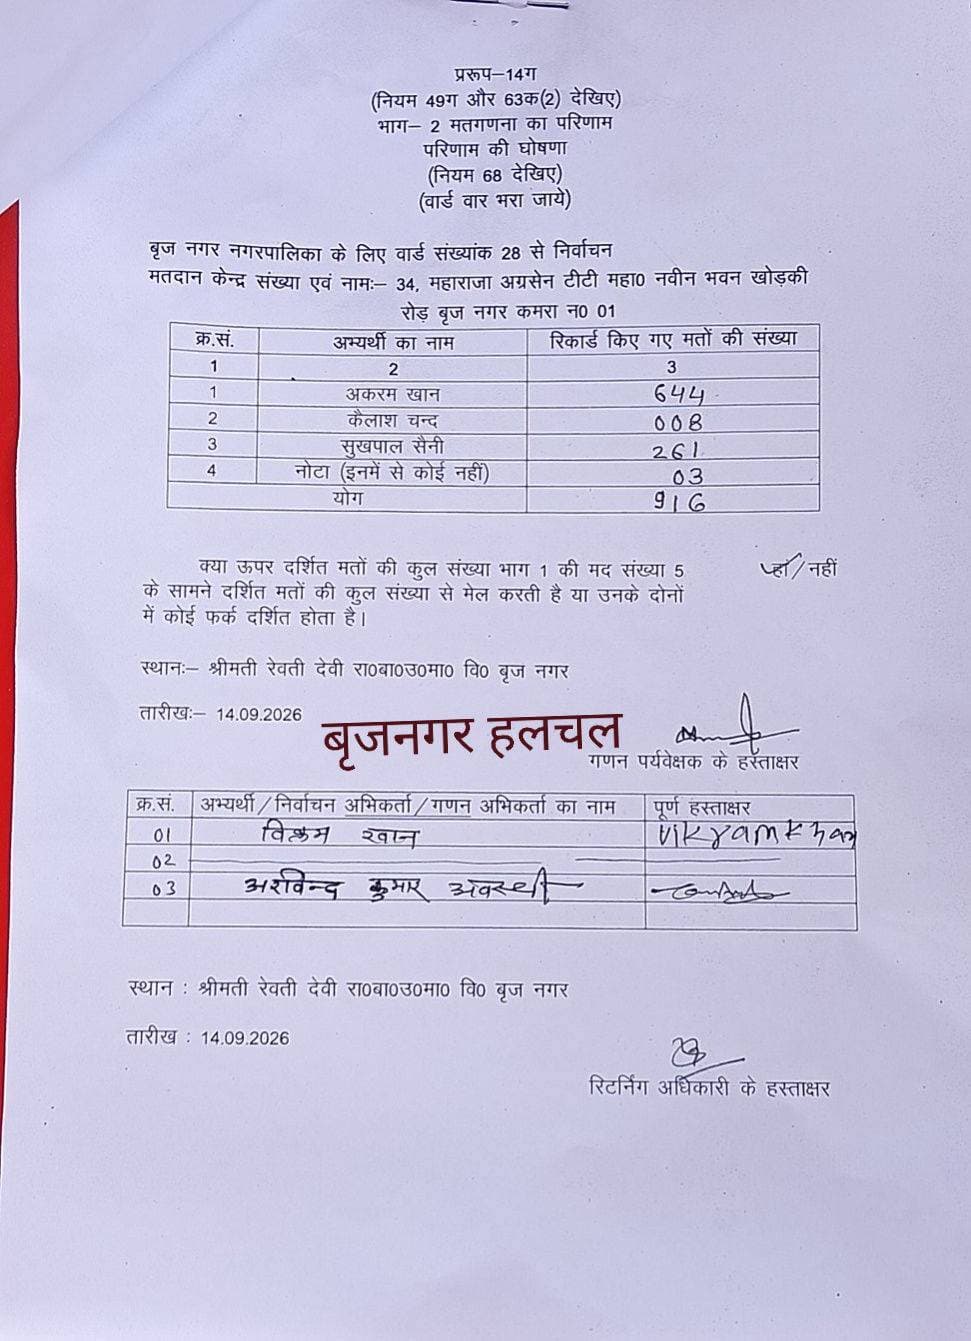 प्ररूप–14ग
(नियम 49ग और 63क(2) देखिए)
भाग– 2 मतगणना का परिणाम
परिणाम की घोषणा
(नियम 68 देखिए)
(वार्ड वार भरा जाये)
बृज नगर नगरपालिका के लिए वार्ड संख्यांक 28 से निर्वाचन
मतदान केन्द्र संख्या एवं नामः– 34, महाराजा अग्रसेन टीटी महा0 नवीन भवन खोड़की
रोड़ बृज नगर कमरा न0 01
क्र.सं. अभ्यर्थी का नाम रिकार्ड किए गए मतों की संख्या
1 2 3
1 अकरम खान 644
2 कैलाश चन्द 008
3 सुखपाल सैनी 261
4 नोटा (इनमें से कोई नहीं) 03
योग 916
क्या ऊपर दर्शित मतों की कुल संख्या भाग 1 की मद संख्या 5 हाँ/नहीं
के सामने दर्शित मतों की कुल संख्या से मेल करती है या उनके दोनों
में कोई फर्क दर्शित होता है।
स्थानः– श्रीमती रेवती देवी रा0बा0उ0मा0 वि0 बृज नगर
तारीखः– 14.09.2026
बृजनगर हलचल
गणन पर्यवेक्षक के हस्ताक्षर
क्र.सं. अभ्यर्थी/निर्वाचन अभिकर्ता/गणन अभिकर्ता का नाम पूर्ण हस्ताक्षर
01 विक्रम खान Vikramkhan
02
03 अरविन्द कुमार अवस्थी
स्थान : श्रीमती रेवती देवी रा0बा0उ0मा0 वि0 बृज नगर
तारीख : 14.09.2026
रिटर्निंग अधिकारी के हस्ताक्षर